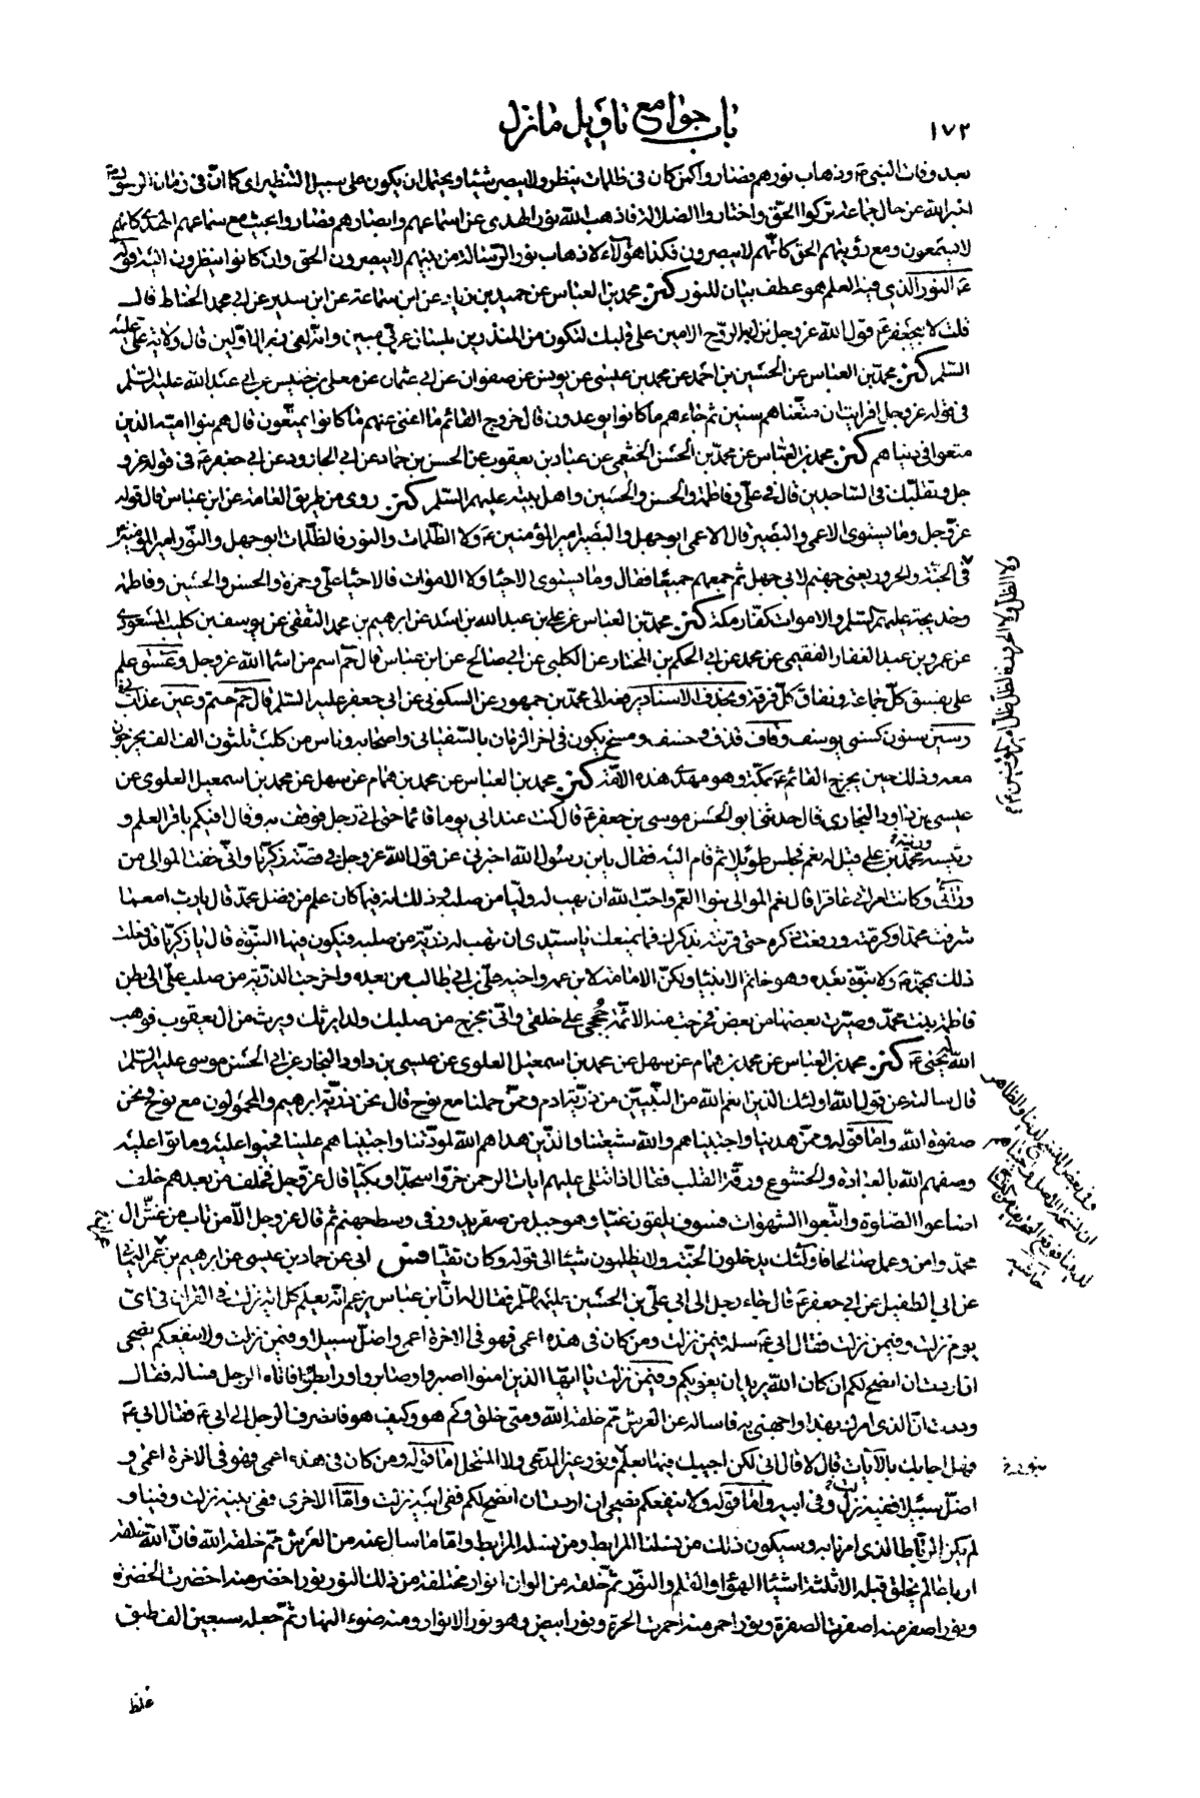 ١٧٢
باب جوامع تاويل ما نزل
بعد وفات النبى ص وذهاب نورهم فصاروا كمن كان فى ظلمات ينظر ولا يبصر شيئا ويحتمل ان يكون على سبيل التنظير اى كما انّ فى زمان الرسول ص
اخبر الله عن حال جماعة تركوا الحق واختاروا الضلالة فاذهب الله نور الهدى عن اسماعهم وابصارهم فصاروا بحيث مع سماعهم الهدى كانهم
لا يسمعون ومع رؤيتهم الحق كانّهم لا يبصرون فكذا هؤلاء لاذهاب نور الرسالة من بينهم لا يبصرون الحق وان كانوا ينظرون اليه قوله
ع النور الذى فيه العلم هو عطف بيان للنور كنز محمد بن العباس عن حميد بن زياد عن ابن سماعة عن ابن سدير عن ابى محمد الحناط قال
قلت لابى جعفر ع قول الله عز وجل نزل به الروح الامين على قلبك لتكون من المنذرين بلسان عربى مبين وانه لفى زبر الاولين قال ولاية على عليه
السّلم كنز محمد بن العباس عن الحسين بن احمد عن محمد بن عيسى عن يونس عن صفوان عن ابى عثمان عن معلى بن خنيس عن ابى عبد الله عليه السّلم
فى قوله عز وجل افرايت ان متّعناهم سنين ثم جاءهم ما كانوا يوعدون قال خروج القائم ما اغنى عنهم ما كانوا يمتّعون قال هم بنوا امية الذين
متعوا فى دنياهم كنز محمد بن العباس عن محمد بن الحسن الخثعمى عن عباد بن يعقوب عن الحسن بن حماد عن ابى الجارود عن ابى جعفر ع فى قوله عز و
جل وتقلبك فى الساجدين قال فى على وفاطمة والحسن والحسين واهل بيته عليهم السّلم كنز روى من طريق العامة عن ابن عباس قال قوله
عزّ وجل وما يستوى الاعمى والبصير قال الاعمى ابو جهل والبصير امير المؤمنين ع ولا الظلمات والنور فالظلمات ابو جهل والنور امير المؤمنين
فى الجنّة والحرور يعنى جهنم لابى جهل ثم جمعهم جميعا فقال وما يستوى الاحياء ولا الاموات فالاحياء على وحمزة والحسن والحسين وفاطمة
وخديجة عليهم السلم والاموات كفار مكة كنز محمد بن العباس عن على بن عبد الله بن اسد عن ابرهيم بن محمد الثقفى عن يوسف بن كليب المسعودى
عن عمرو بن عبد الغفار الفقيمى عن محمد عن ابى الحكم بن المختار عن الكلبى عن ابى صالح عن ابن عباس قال حم اسم من اسماء الله عز وجل وعسق علم
على بفسق كلّ جماعة ونفاق كلّ فرقة وبحذف الاسناد يرفعه الى محمد بن جمهور عن السكونى عن ابى جعفر عليه السلم قال حم حتم وعين عذاب
وسين سنون كسنى يوسف وقاف قذف وخسف ومسخ يكون فى اخر الزمان بالسفيانى واصحابه وناس من كلب ثلثون الف الف يخرجون
معه وذلك حين يخرج القائم ع بمكة وهو مهدى هذه الامّة كنز محمد بن العباس عن محمد بن همام عن سهل عن محمد بن اسمعيل العلوى عن
عيسى بن داود النجارى قال حدثنى ابو الحسن موسى بن جعفر ع قال كنت عند ابى يوما قائما حتى اتى رجل فوقف به وقال افيكم باقر العلم و
رئيسه محمد بن على قيل له نعم فجلس طويلا ثم قام اليه فقال يا بن رسول الله اخبرنى عن قول الله عز وجل فى قصة زكريا وانى خفت الموالى من
ورائى وكانت امراتى عاقرا قال نعم الموالى بنوا العم واحبّ الله ان يهب له وليا من صلبه وذلك انه فيما كان علم من فضل محمد قال يا رب امع ما
شرفت محمدا وكرمته ورفعت ذكره حتى قرنته بذكرك فما يمنعك يا سيدى ان تهب له ذرية من صلبه فيكون فيها النبوّة قال يا زكريا قد فعلت
ذلك بمحمد ص ولا نبوّة بعده وهو خاتم الانبياء ولكنّ الامامة لابن عمه واخيه على بن ابى طالب من بعده واخرجت الذرية من صلب على الى بطن
فاطمة بنت محمد وصيّرت بعضها من بعض فخرجت منه الائمّة حججى على خلقى وانى مخرج من صلبك ولدا يرثك ويرث من ال يعقوب فوهب
الله له يحيى ع كنز محمد بن العباس عن محمد بن همام عن سهل عن محمد بن اسمعيل العلوى عن عيسى بن داود النجار عن ابى الحسن موسى عليه السّلم
قال سالته عن قول الله اولئك الذين انعم الله من النبيّين من ذريّة ادم وممن حملنا مع نوح قال نحن ذريّة ابرهيم والمحمولون مع نوح ونحن
صفوة الله وامّا قوله وممّن هدينا واجتبينا هم والله شيعتنا والّذين هداهم الله لمودّتنا واجتبيناهم علينا فحيوا عليه وماتوا عليه
وصفهم الله بالعبادة والخشوع ورقّة القلب فقال اذا تتلى عليهم ايات الرحمن خروا سجّدا وبكيّا قال عز وجل فخلف من بعدهم خلف
اضاعوا الصّلوة واتّبعوا الشهوات فسوف يلقون غيّا وهو جبل من صفر يدور فى وسط جهنم ثم قال عز وجل الا من تاب من غشّ ال
محمّد وامن وعمل صالحا فاولئك يدخلون الجنّة ولا يظلمون شيئا الى قوله وكان تقيّا فس ابى عن حماد بن عيسى عن ابرهيم بن عمر اليمانى
عن ابى الطفيل عن ابى جعفر ع قال جاء رجل الى ابى علىّ بن الحسين عليهما السّلم فقال له انّ ابن عباس يزعم انّه يعلم كل اية نزلت فى القران فى اىّ
يوم نزلت وفيمن نزلت فقال ابى ع سله فيمن نزلت ومن كان فى هذه اعمى فهو فى الاخرة اعمى واضلّ سبيلا وفيمن نزلت ولا ينفعكم نصحى
ان اردت ان انصح لكم ان كان الله يريد ان يغويكم وفيمن نزلت يا ايّها الذين امنوا اصبروا وصابروا ورابطوا فاتاه الرجل فساله فقال
وددت انّ الذى امرك بهذا واجهنى به فاساله عن العرش ممّ خلقه الله ومتى خلق وكم هو وكيف هو فانصرف الرجل الى ابى ع فقال ابى ع
فهل اجابك بالآيات قال لا قال ابى لكن اجيبك فيها بعلم ونور غير المدّعى ولا المنتحل امّا قوله ومن كان فى هذه اعمى فهو فى الاخرة اعمى و
اضلّ سبيلا ففيه نزلت وفى ابيه وامّا قوله ولا ينفعكم نصحى ان اردت ان انصح لكم ففى ابيه نزلت وامّا الاخرى ففى بنيه نزلت وفينا و
لم يكن الرّباط الذى امرنا به وسيكون ذلك من نسلنا المرابط ومن نسله المرابط وامّا ما سال عنه من العرش ممّ خلقه الله فانّ الله خلقه
ارباعا لم يخلق قبله الا ثلثة اشياء الهواء والقلم والنور ثمّ خلقه من الوان انوار مختلفة من ذلك النور نور اخضر منه اخضرت الخضرة
ونور اصفر منه اصفرت الصفرة ونور احمر منه احمرت الحمرة ونور ابيض وهو نور الانوار ومنه ضوء النهار ثمّ جعله سبعين الف طبق
غلظ
ولا الظلّ ولا الحرور فالظل ظلّ امير المؤمنين ع